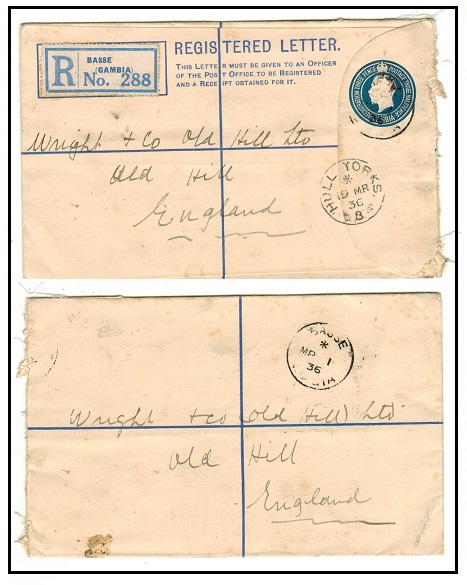 BASSE
(GAMBIA)
R No. 288
REGISTERED LETTER.
THIS LETTER MUST BE GIVEN TO AN OFFICER
OF THE POST OFFICE TO BE REGISTERED
AND A RECEIPT OBTAINED FOR IT.
Wright & Co Old Hill Ltd
Old Hill
England
HULL YORKS.
*
MR
36
8
BASSE
*
MR 1
36
Wright & Co (Old Hill) Ltd
Old Hill
England